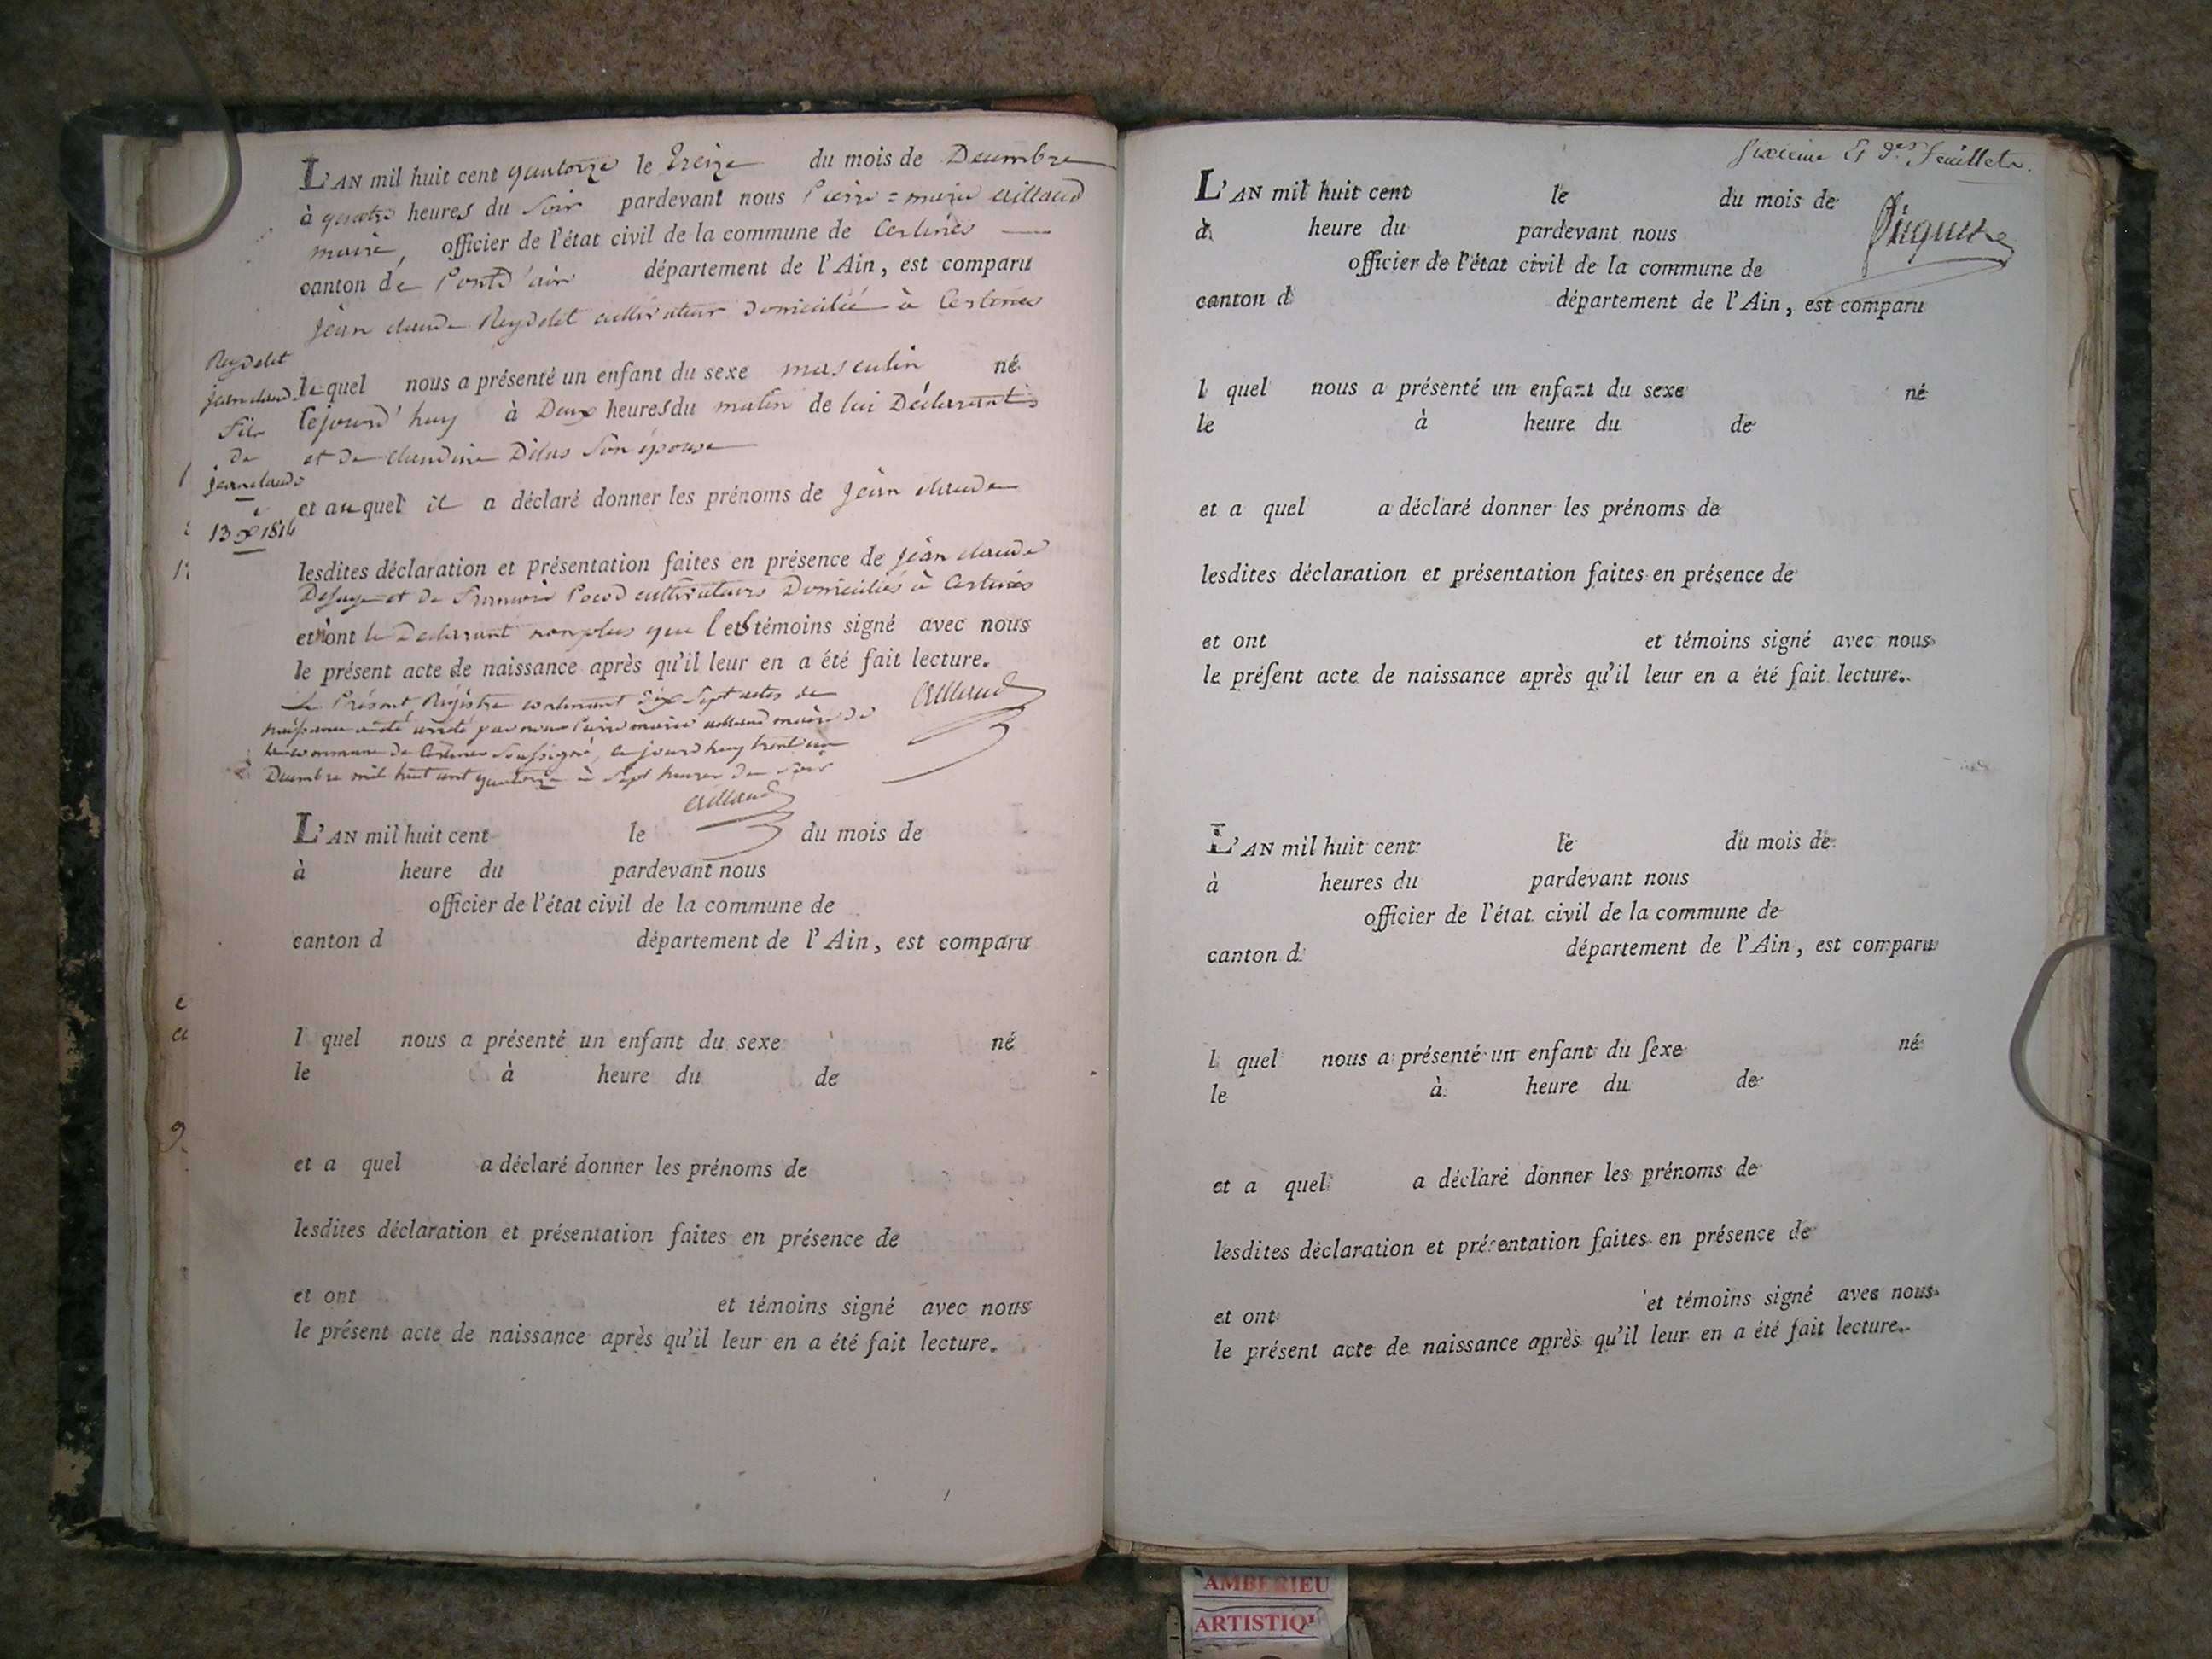 L'AN mil huit cent quatorze le treize du mois de Decembre
à quatre heures du soir pardevant nous Pierre = marie aillaud
maire, officier de l'état civil de la commune de Certines
canton de Pontd'ain département de l'Ain, est comparu
jean claude Reydelet cultivateur domicilié à Certines
Reydelet
jean claude
fils
de
jean claude
13 1814
lequel nous a présenté un enfant du sexe masculin né
cejourd'huy à Deux heures du matin de lui Déclarant
et de claudine son épouse
et auquel il a déclaré donner les prénoms de jean claude
lesdites déclaration et présentation faites en présence de jean claude
et de cultivateurs Domiciliés à Certines
et n'ont le Declarant non plus que les témoins signé avec nous
le présent acte de naissance après qu'il leur en a été fait lecture.
Le Présent Régistre contenant dix sept actes de
naissance a été par nous Pierre marie aillaud maire de
la commune de Certines soussigné, ce jourd'huy trent'un
Decembre mil huit cent quatorze à sept heures du soir
aillaud
aillaud
L'AN mil huit cent le du mois de
à heure du pardevant nous
officier de l'état civil de la commune de
canton d département de l'Ain, est comparu
l quel nous a présenté un enfant du sexe né
le à heure du de
et a quel a déclaré donner les prénoms de
lesdites déclaration et présentation faites en présence de
et ont et témoins signé avec nous
le présent acte de naissance après qu'il leur en a été fait lecture.
sixieme Et d.er feuillet.
L'AN mil huit cent le du mois de
à heure du pardevant nous
officier de l'état civil de la commune de
canton d département de l'Ain, est comparu
l quel nous a présenté un enfant du sexe né
le à heure du de
et a quel a déclaré donner les prénoms de
lesdites déclaration et présentation faites en présence de
et ont et témoins signé avec nous
le préſent acte de naissance après qu'il leur en a été fait lecture.
L'AN mil huit cent le du mois de
à heures du pardevant nous
officier de l'état civil de la commune de
canton d département de l'Ain, est comparu
l quel nous a présenté un enfant du ſexe né
le à heure du de
et a quel a déclaré donner les prénoms de
lesdites déclaration et présentation faites en présence de
et ont et témoins signé avec nous
le présent acte de naissance après qu'il leur en a été fait lecture.
AMBERIEU
ARTISTIQ